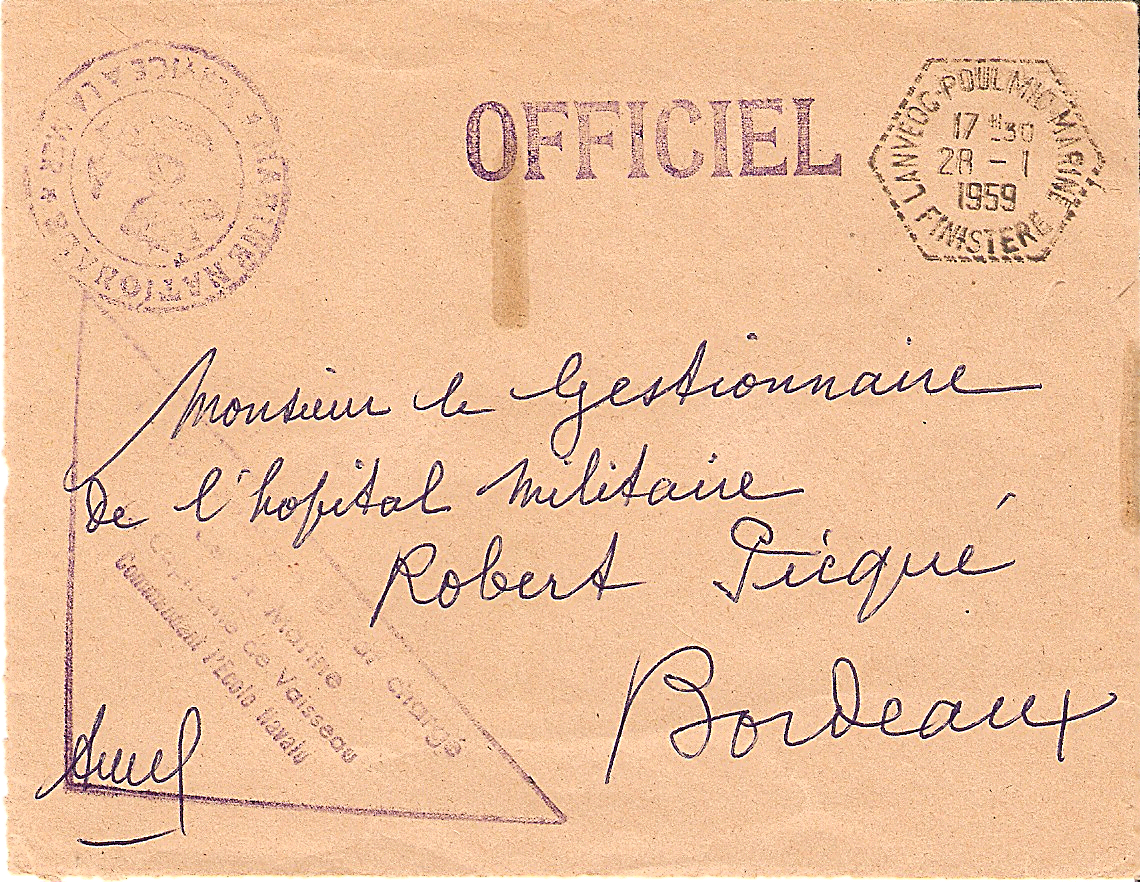 MARINE NATIONALE
SERVICE A LA MER
OFFICIEL
LANVEOC-POULMIC-MARINE
17 H 30
28 - 1
1959
FINISTERE
Monsieur le Gestionnaire
De l'hopital Militaire
Robert Picqué
Bordeaux
chargé
Marine
Capitaine de Vaisseau
Commandant l'Ecole Navale